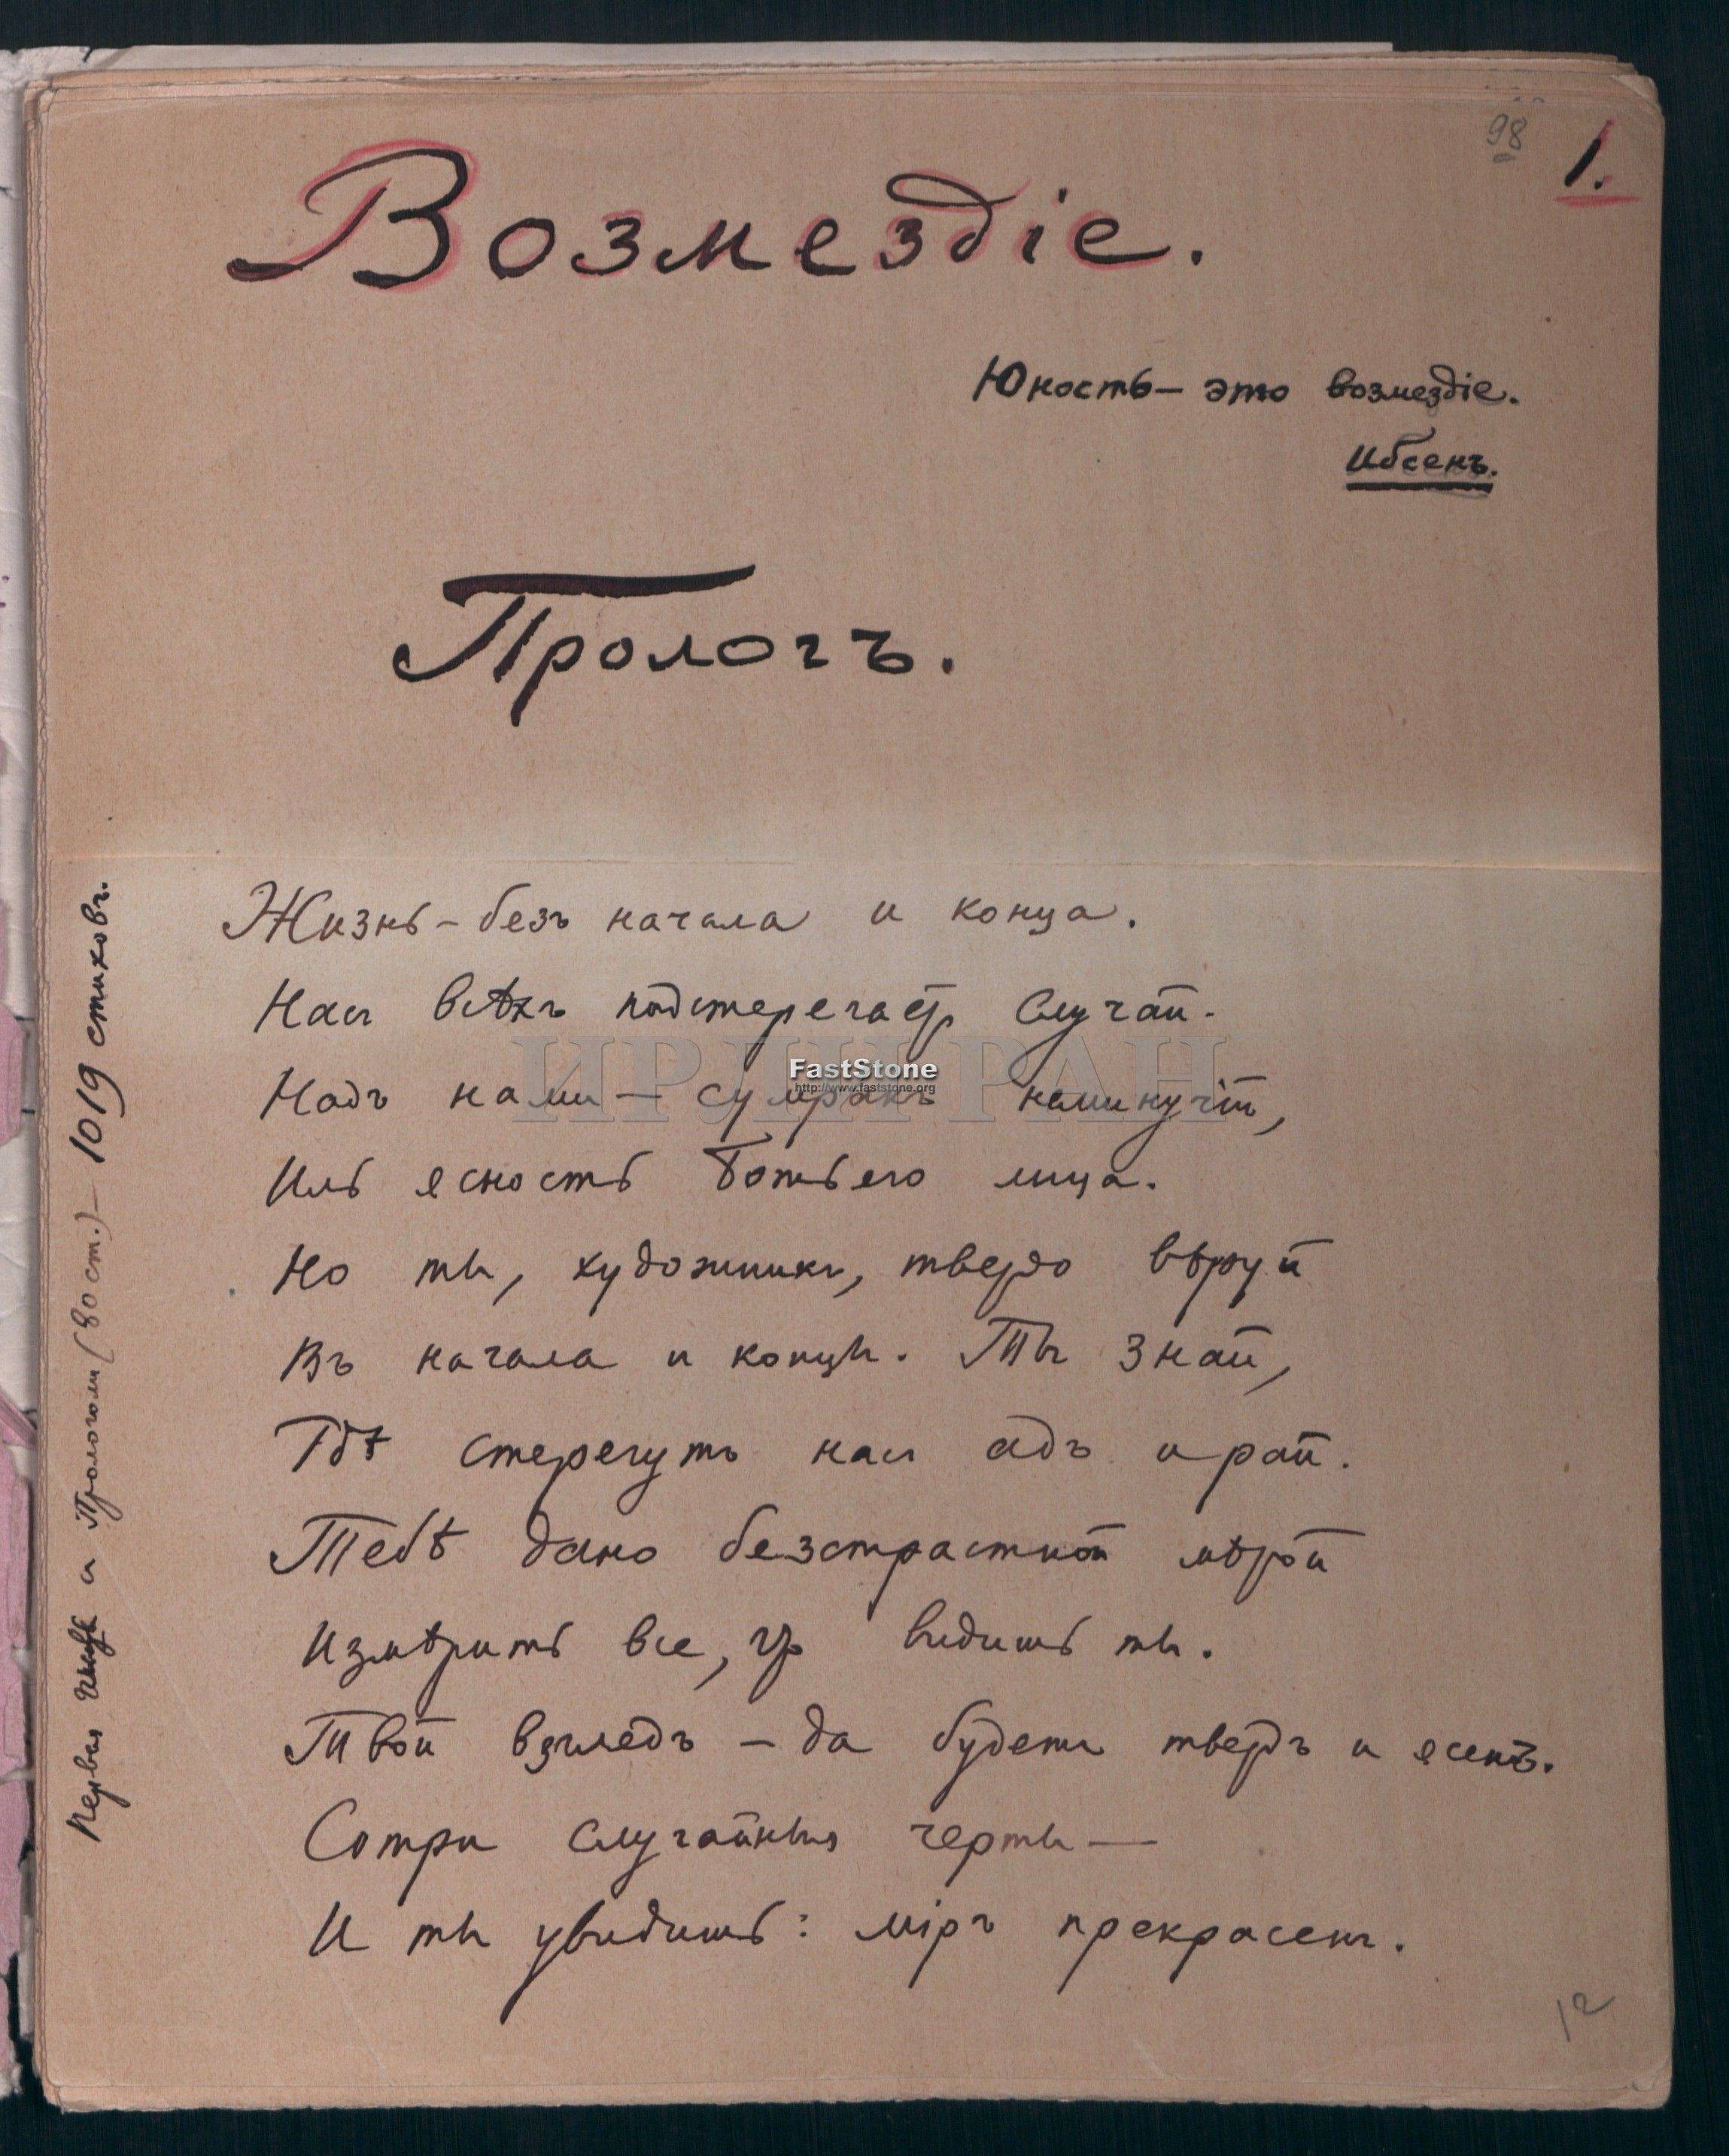 98
1.
Возмездіе.
Юность – это возмездіе.
Ибсенъ.
Прологъ.
Жизнь – безъ начала и конца.
Насъ всѣхъ подстерегаетъ случай.
Надъ нами – сумракъ неминучій,
Иль ясность Божьего лица.
Но ты, художникъ, твердо вѣруй
Въ начала и концы. Ты знай,
Гдѣ стерегутъ насъ адъ и рай.
Тебѣ дано безстрастной мѣрой
Измѣрить все, что видишь ты.
Твой взглядъ – да будетъ твердъ и ясенъ.
Сотри случайныя черты —
И ты увидишь: міръ прекрасенъ.
12
Первая и Прологомъ (80 ст.) – 1019 стиховъ.
ИРЛИ РАН
FastStone
http://www.faststone.org